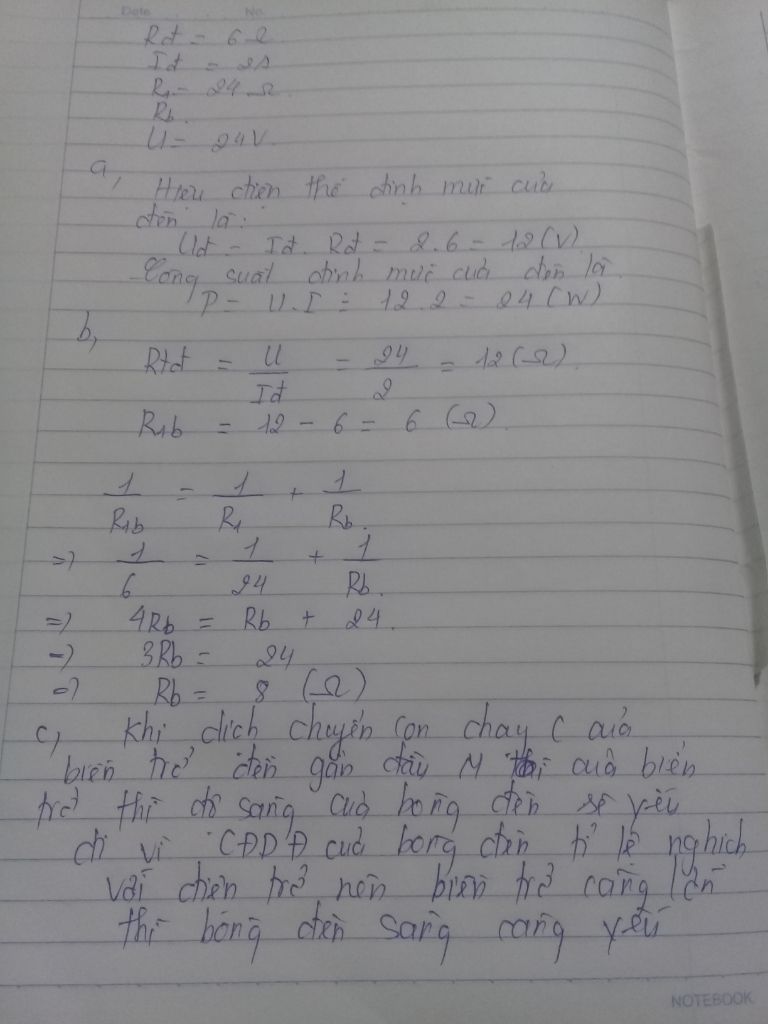 Date No.
Rđ = 6 Ω
Iđ = 2A
R1 = 24 Ω.
Rb.
U = 24V.
a, Hiệu điện thế định mức của
đèn là:
Uđ = Iđ. Rđ = 2.6 = 12 (V)
Công suất định mức của đèn là
P = U.I = 12.2 = 24 (W)
b,
Rtđ = U/Iđ = 24/2 = 12 (Ω).
R1b = 12 - 6 = 6 (Ω).
1/R1b = 1/R1 + 1/Rb.
=> 1/6 = 1/24 + 1/Rb.
=> 4Rb = Rb + 24.
=> 3Rb = 24
=> Rb = 8 (Ω)
c, Khi dịch chuyển con chạy C của
biến trở đến gần đầu M của biến
trở thì độ sáng của bóng đèn sẽ yếu
đi vì CĐDĐ của bóng đèn tỉ lệ nghịch
với điện trở nên biến trở càng lớn
thì bóng đèn sáng càng yếu
NOTEBOOK